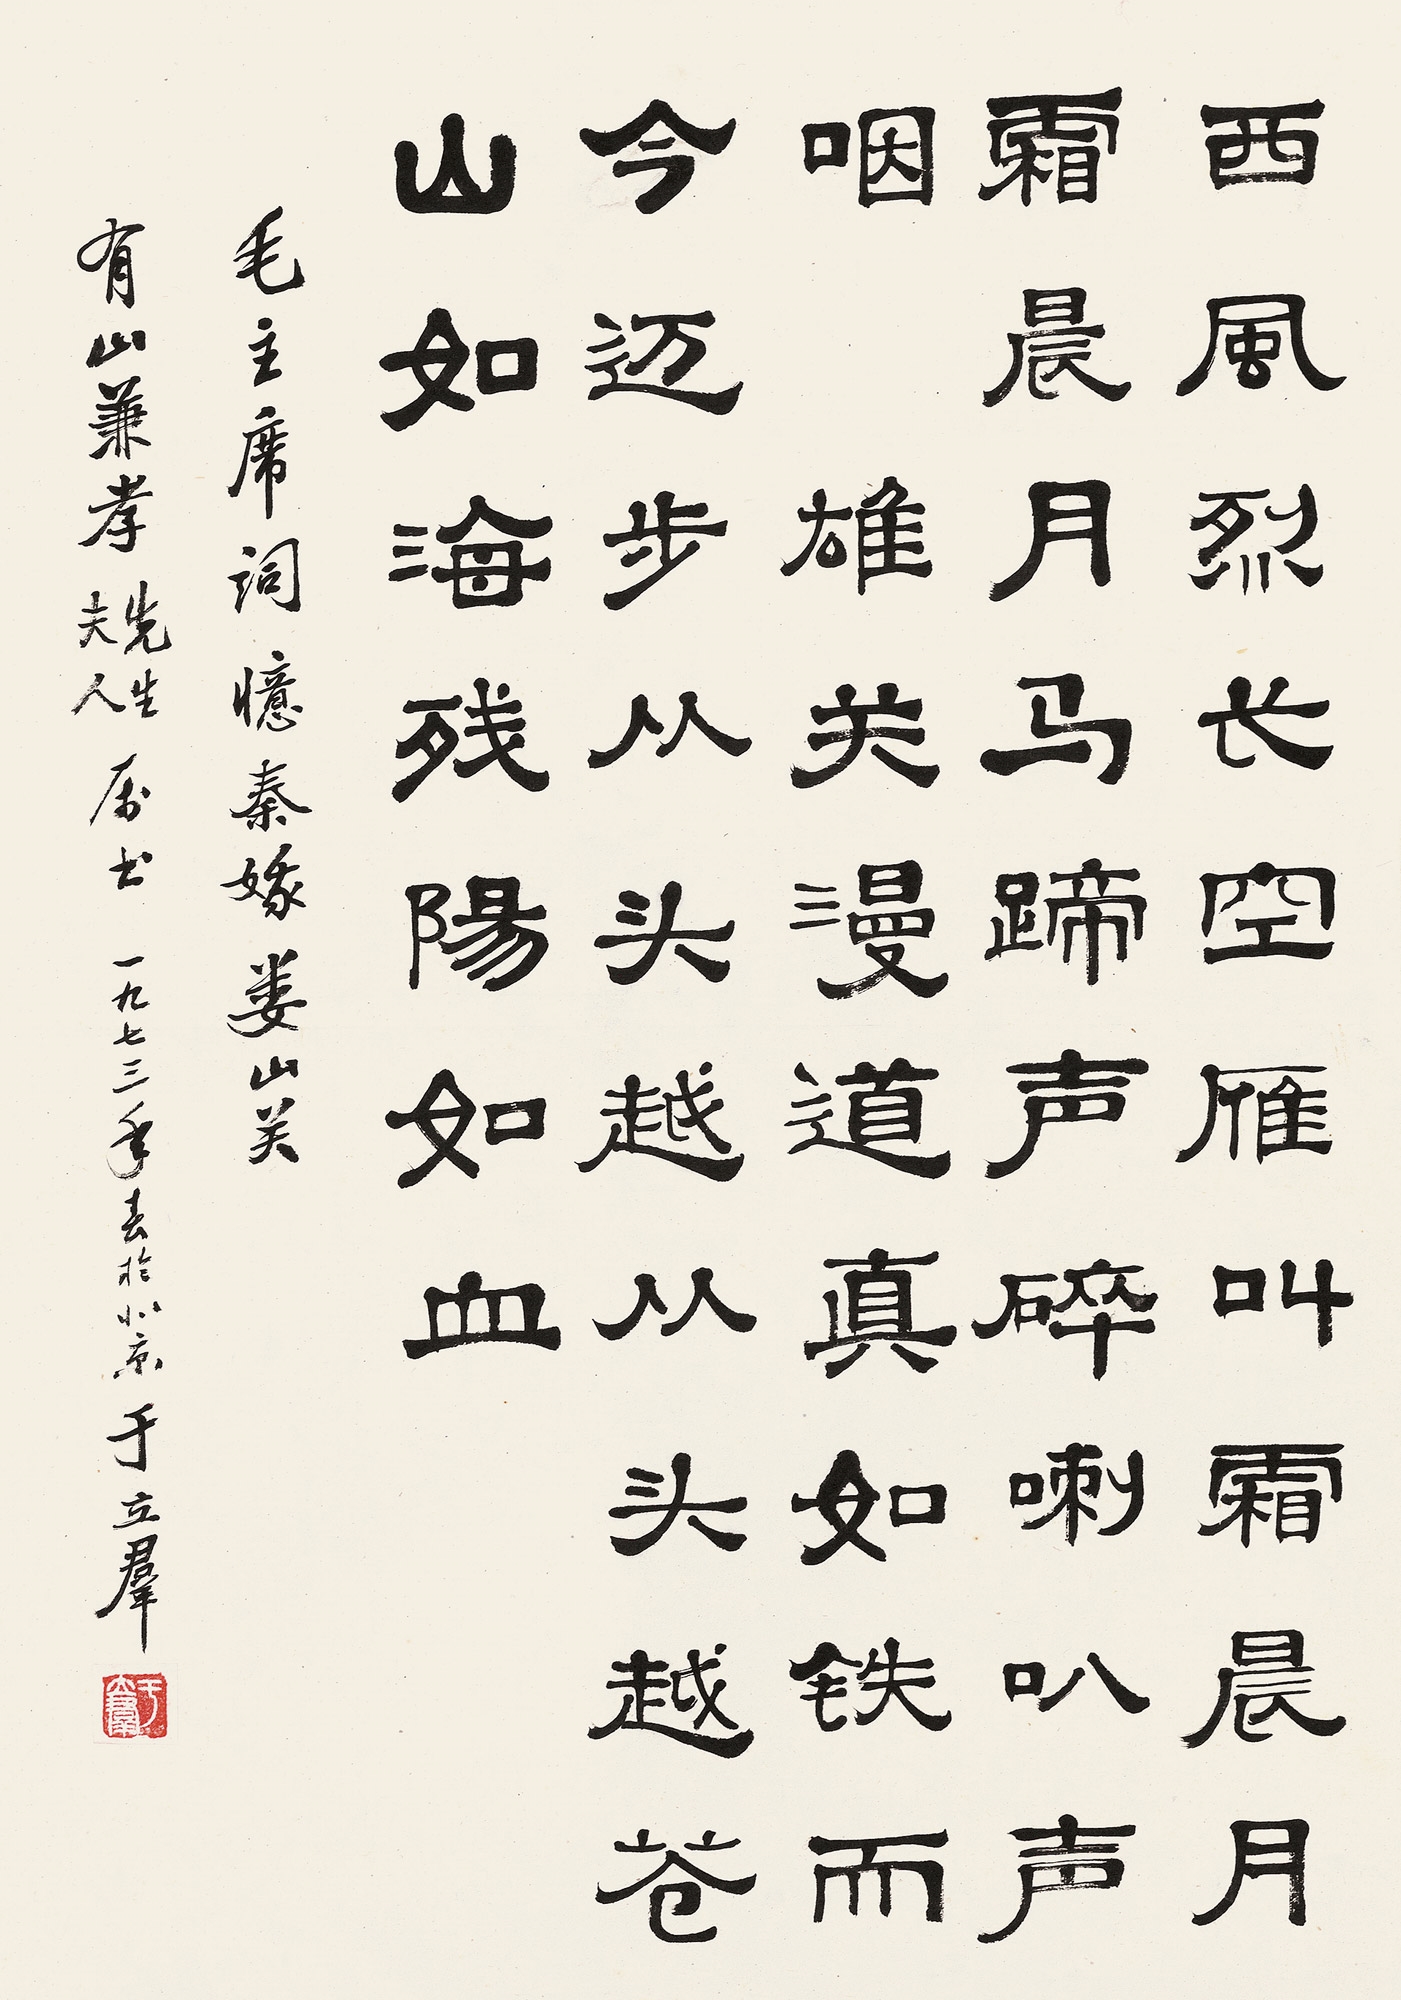 西風烈长空雁叫霜晨月
霜晨月马蹄声碎喇叭声
咽 雄关漫道真如铁而
今迈步从头越从头越苍
山如海残陽如血
毛主席词憶秦娥娄山关
有山兼孝先生夫人属书 一九七三年春於北京 于立羣
于立羣